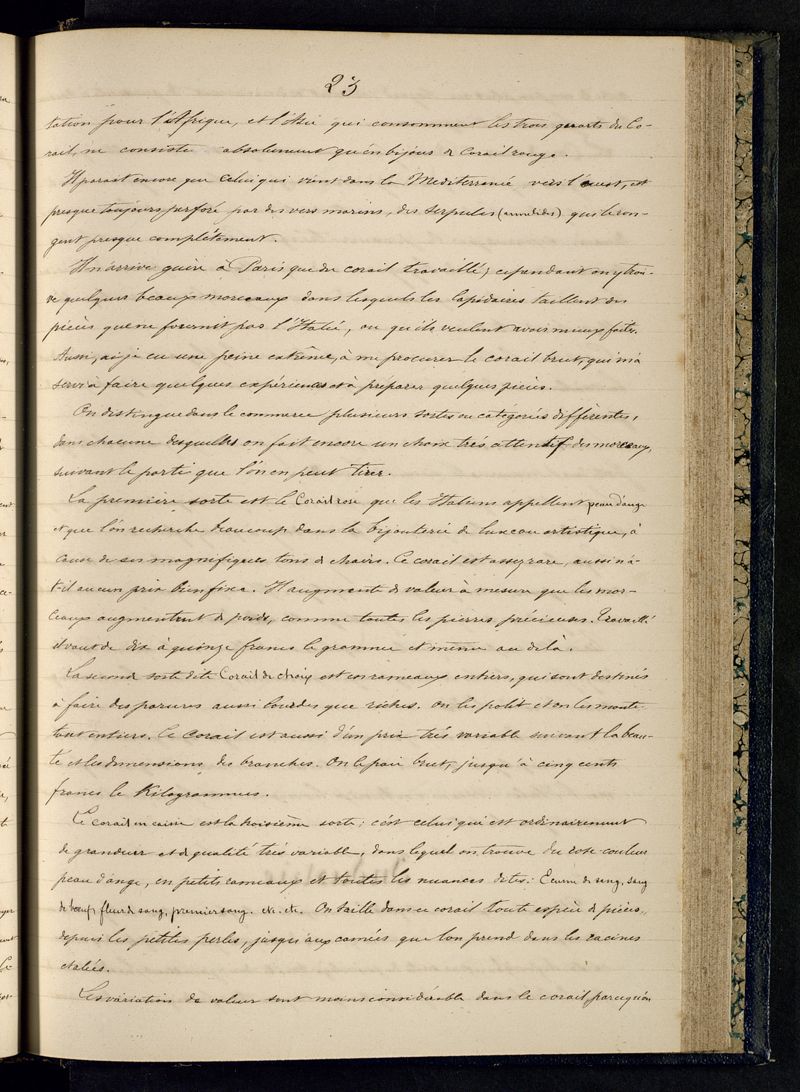 23
tation pour l'Afrique, et l'Asie qui consomment les trois quarts du Co-
rail, ne consiste absolument qu'en bijoux de Corail rouge.
Il parait encore que celui qui vient dans la Mediterranié vers l'ouest, est
presque toujours perforé par des vers marins, des serpules (annelides) que le ron-
gent presque complétement.
Il n'arrive guère à Paris que du corail travaillé; cependant on y trou-
ve quelques beaux morceaux dans lesquels les lapidaires taillent des
pièces que ne fournit pas l'Italie, ou qu'ils veulent avoir mieux faites.
Aussi, ai-je eu une peine extrême, à me procurer le corail brut, qui m'a
servi à faire quelques expériences et à préparer quelques pièces.
On distingue dans le commerce plusieurs sortes ou catégories différentes,
dans chacune desquelles on fait encore un choix trés attentif des morceaux,
suivant le parti que l'on en peut tirer.
La première sorte est le Corail rose que les Italiens appellent peau d'ange
et que l'on recherche beaucoup dans la bijouterie de luxe ou artistique, à
cause de ses magnifiques tons de chairs. Ce corail est assez rare, aussi n'a-
t-il aucun prix bien fixe. Il augmente de valeur à mesure que les mor-
ceaux augmentent de poids, comme toutes les pierres précieuses. Travaillé
il vaut de dix à quinze francs le gramme et même au delà.
La second sorte dite Corail de choix est en rameaux entiers, qui sont destinés
à faire des parures aussi lourdes que riches. On les polit et on les monte
tout entiers. Ce Corail est aussi d'un prix trés variable suivant la beau-
té et les dimensions des branches. On le paie brut, jusqu'à cinq cents
francs le Kilogrammes.
Le corail en caisse est la troisième sorte: c'est celui qui est ordinairement
de grandeur et de qualité trés variable, dans lequel on trouve du rose couleur
peau d'ange, en petits rameaux et toutes les nuances dites: Ecume de sang, sang
de bœuf, fleur de sang, premier sang. etc. etc. On taille dans ce corail toute espèce de pièces,
depuis les petites perles, jusqu'aux camées que l'on prend dans les racines
etalées.
Les variations de valeur sont moins considérable dans le corail parce qu'on